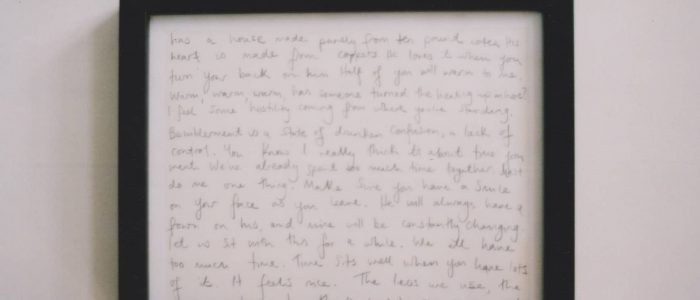 has a house made purely from ten pound notes. His
heart is made from carpets He loves it when you
turn your back on him Half of you will warm to me.
Warm, warm, warm, has someone turned the heating up in here?
I feel some hostility coming from where you're standing.
Bamblerment is a state of drunken confusion, a lack of
control. You know I really think its about time you
went. We've already spent too much time together. Just
do me one thing. Make sure you have a smile
on your face as you leave. He will always have a
frown on his, and mine will be constantly changing.
Let us sit with this for a while. We all have
too much time. Time sits well when you have lots
of it. It feels nice. The less we use, the